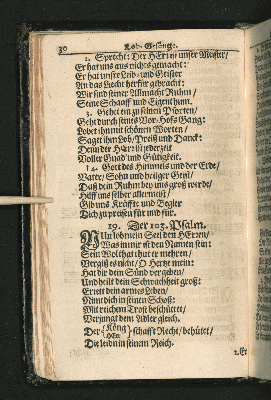 30 Lob-Gesänge.
2. Sprecht: Der HErr ist unser Meister/
Er hat uns aus nichts gemacht:
Er hat unser Leib und Geister
An das Liecht herfür gebracht:
Wir sind seiner Allmacht Ruhm/
Seine Schaaff und Eigenthum.
3. Gehet ein zu seinen Pforten/
Geht durch seines Vor-Hofs Gang:
Lobet ihn mit schönen Worten/
Saget ihm Lob/ Preiß und Danck:
Denn der HErr ist jederzeit
Voller Gnad und Gütigkeit.
4. Gott des Himmels und der Erde/
Vater/ Sohn und heiliger Geist/
Daß dein Ruhm bey uns groß werde/
Hilff uns selber allermeist/
Gib uns Kräffte und Begier
Dich zu preisen für und für.
19. Der 103. Psalm.
NUn lob mein Seel den HErrn/
Was in mir ist den Namen sein:
Sein Wolthat thut er mehren/
Vergiß es nicht/ O Hertze mein:
Hat dir dein Sünd vergeben/
Und heilt dein Schwachheit groß:
Errett dein armes Leben/
Nimt dich in seinen Schoß:
Mit reichem Trost beschüttet/
Verjüngt dem Adler gleich.
Der {König HErr} schafft Recht/ behütet/
Die leidn in seinem Reich.
2. Er